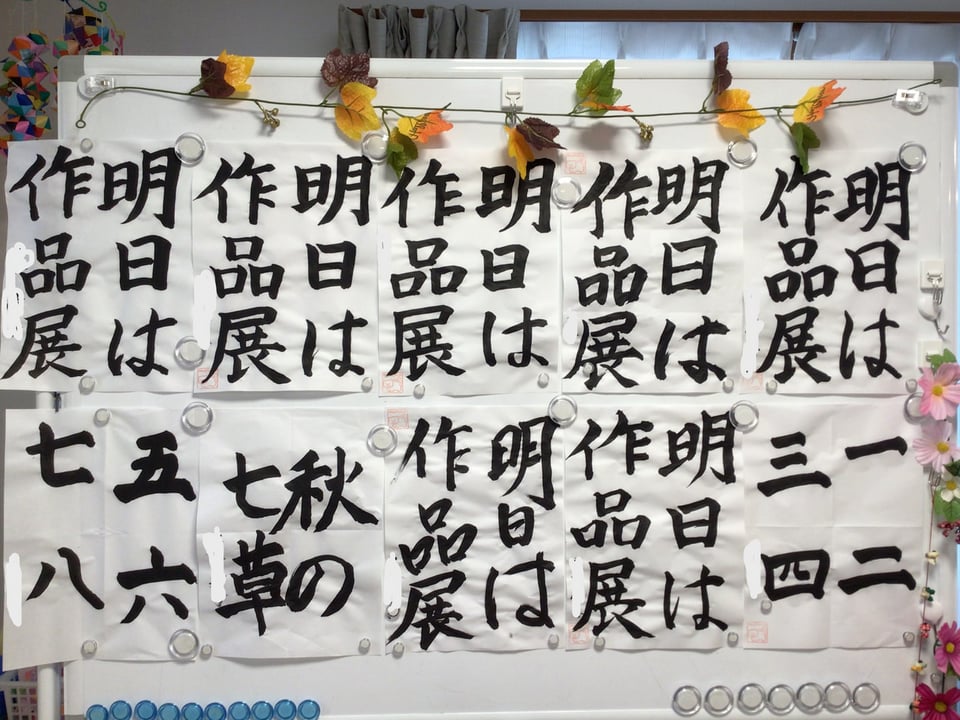 明日は
作品展
明日は
作品展
明日は
作品展
明日は
作品展
明日は
作品展
一二
三四
明日は
作品展
明日は
作品展
秋の
七草
五六
七八